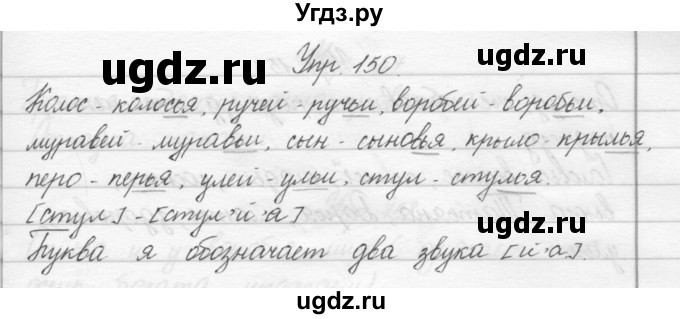 Угдз.ру
Упр. 150.
Колос - колосья, ручей - ручьи, воробей - воробьи,
муравей - муравьи, сын - сыновья, крыло - крылья,
перо - перья, улей ульи, стул - стулья.
[стул] - [стул'й'а]
Буква я обозначает два звука [й'а].
ugdz.ru
ugdz.ru
ugdz.ru
ugdz.ru
ugdz.ru
ugdz.ru
ugdz.ru